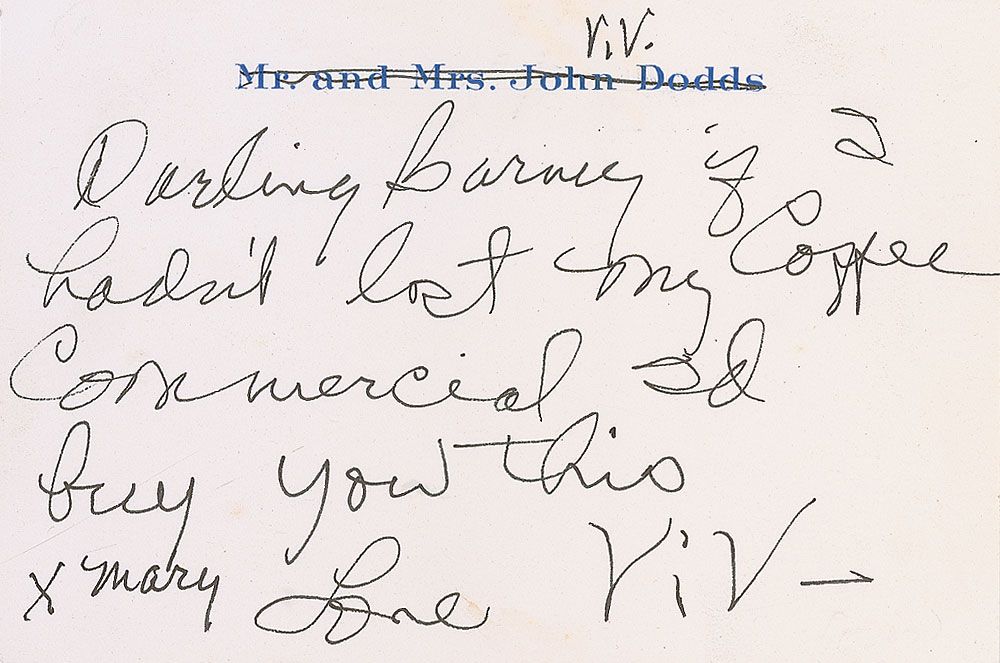 ViV.
Mr. and Mrs. John Dodds
Darling Barney if I
hadn't lost my Coffee
Commercial I'd
buy you this
X mary Love ViV —